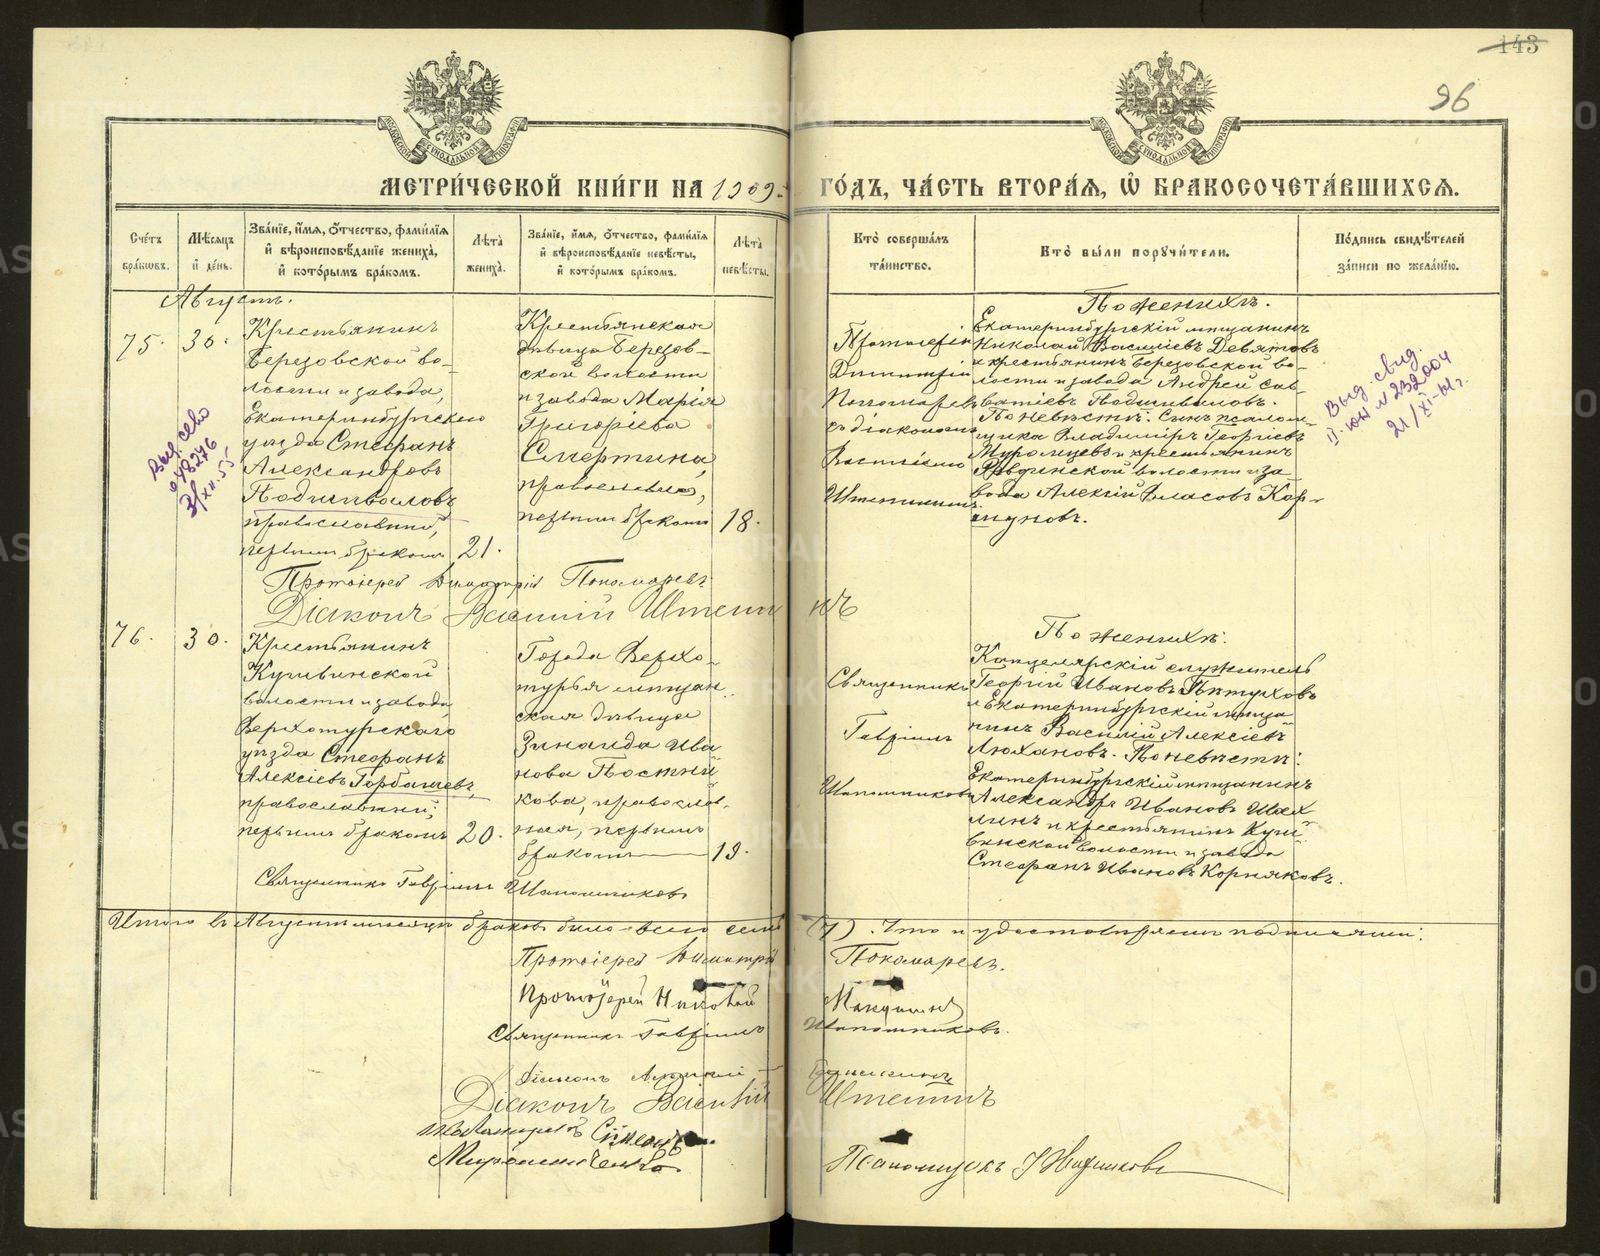 143
96
МЕТРИ́ЧЕСКОЙ КНИ́ГИ НА 1909 ГО́ДЪ, ЧА́СТЬ ВТОРА́Я, Ѡ БРАКОСОЧЕТА́ВШИХСЯ.
Сче́тъ бра́кѡвъ.
Мѣ́сяцъ и де́нь.
Зва́нїе, и́мя, о́тчество, фами́лїя
и вѣроисповѣ́данїе жениха̀,
и кото́рымъ бра́комъ.
Лѣта̀ жениха̀.
Зва́нїе, и́мя, о́тчество, фами́лїя
и вѣроисповѣ́данїе невѣ́сты,
и кото́рымъ бра́комъ.
Лѣта̀ невѣ́сты.
Кто̀ соверша́лъ
та́инство.
Кто̀ бы́ли пору́чители.
По́дпись свидѣ́телей
за́писи по жела́нїю.
Августъ.
75.
30.
Крестьянинъ
Березовской во-
лости и завода,
Екатеринбургскаго
уѣзда Стефанъ
Александровъ
Подшиваловъ,
православный,
первымъ бракомъ
21.
Крестьянская
дѣвица Березов-
ской волости
и завода Марія
Григоріева
Смертина,
православная,
первымъ бракомъ
18.
Протоіерей
Димитрій
Пономаревъ
съ діакономъ
Василіемъ
Штетинымъ.
По женихѣ:
Екатеринбургскій мѣщанинъ
Николай Василіевъ Девятовъ
и крестьянинъ Березовской во-
лости и завода Андрей Сав-
ватіевъ Подшиваловъ.
По невѣстѣ: Сынъ псалом-
щика Владиміръ Георгіевъ
Муромцевъ и крестьянинъ
Ревдинской волости и за
вода Алексій Власовъ Кор-
шуновъ.
Протоіерей Димитрій Пономаревъ
Діаконъ Василій Штетинъ
76.
30.
Крестьянинъ
Кушвинской
волости и завода,
Верхотурскаго
уѣзда Стефанъ
Алексіевъ Горбашевъ,
православный,
первымъ бракомъ
20.
Города Верхо-
турья мѣщан-
ская дѣвица
Зинаида Ива
нова Постни
кова, православ-
ная, первымъ
бракомъ
19.
Священникъ
Гавріилъ
Шапошниковъ
По женихѣ:
Канцелярскій служитель
Георгій Ивановъ Пѣтуховъ
и Екатеринбургскій мѣща-
нинъ Василій Алексіевъ
Люхановъ. По невѣстѣ:
Екатеринбургскій мѣщанинъ
Александръ Ивановъ
и крестьянинъ Куш-
винской волости и завода
Стефанъ Ивановъ Корняковъ.
Священникъ Гавріилъ Шапошниковъ
Итого въ Августѣ мѣсяцѣ браковъ было всего семь (7). Что и удостовѣряемъ подписями:
Протоіерей Димитрій Пономаревъ.
Протоіерей Николай
Священникъ Гавріилъ Шапошниковъ.
Діаконъ
Діаконъ Василій Штетинъ
Псаломщикъ
Выд. св-во
№ 48276
3/XII.55
Выд. свид.
II-ЮН № 232004
21/XI-61 г.